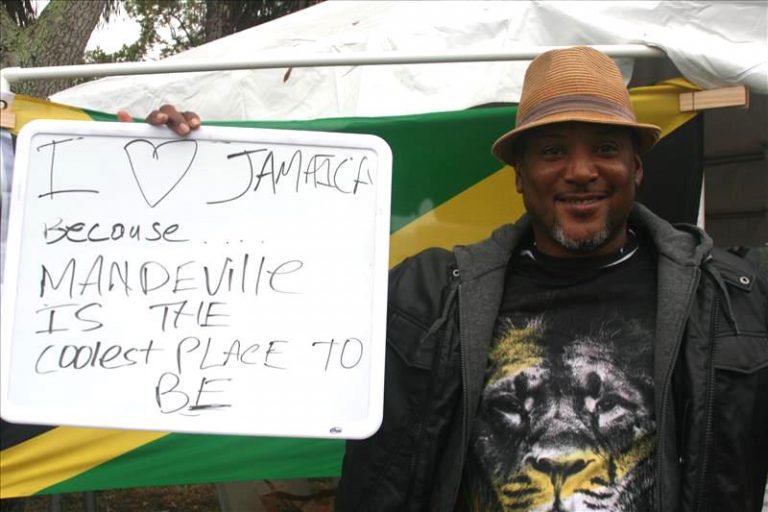 I ♡ JAMAICA
Because.....
MANDEVILLE
IS THE
Coolest PLACE TO
BE